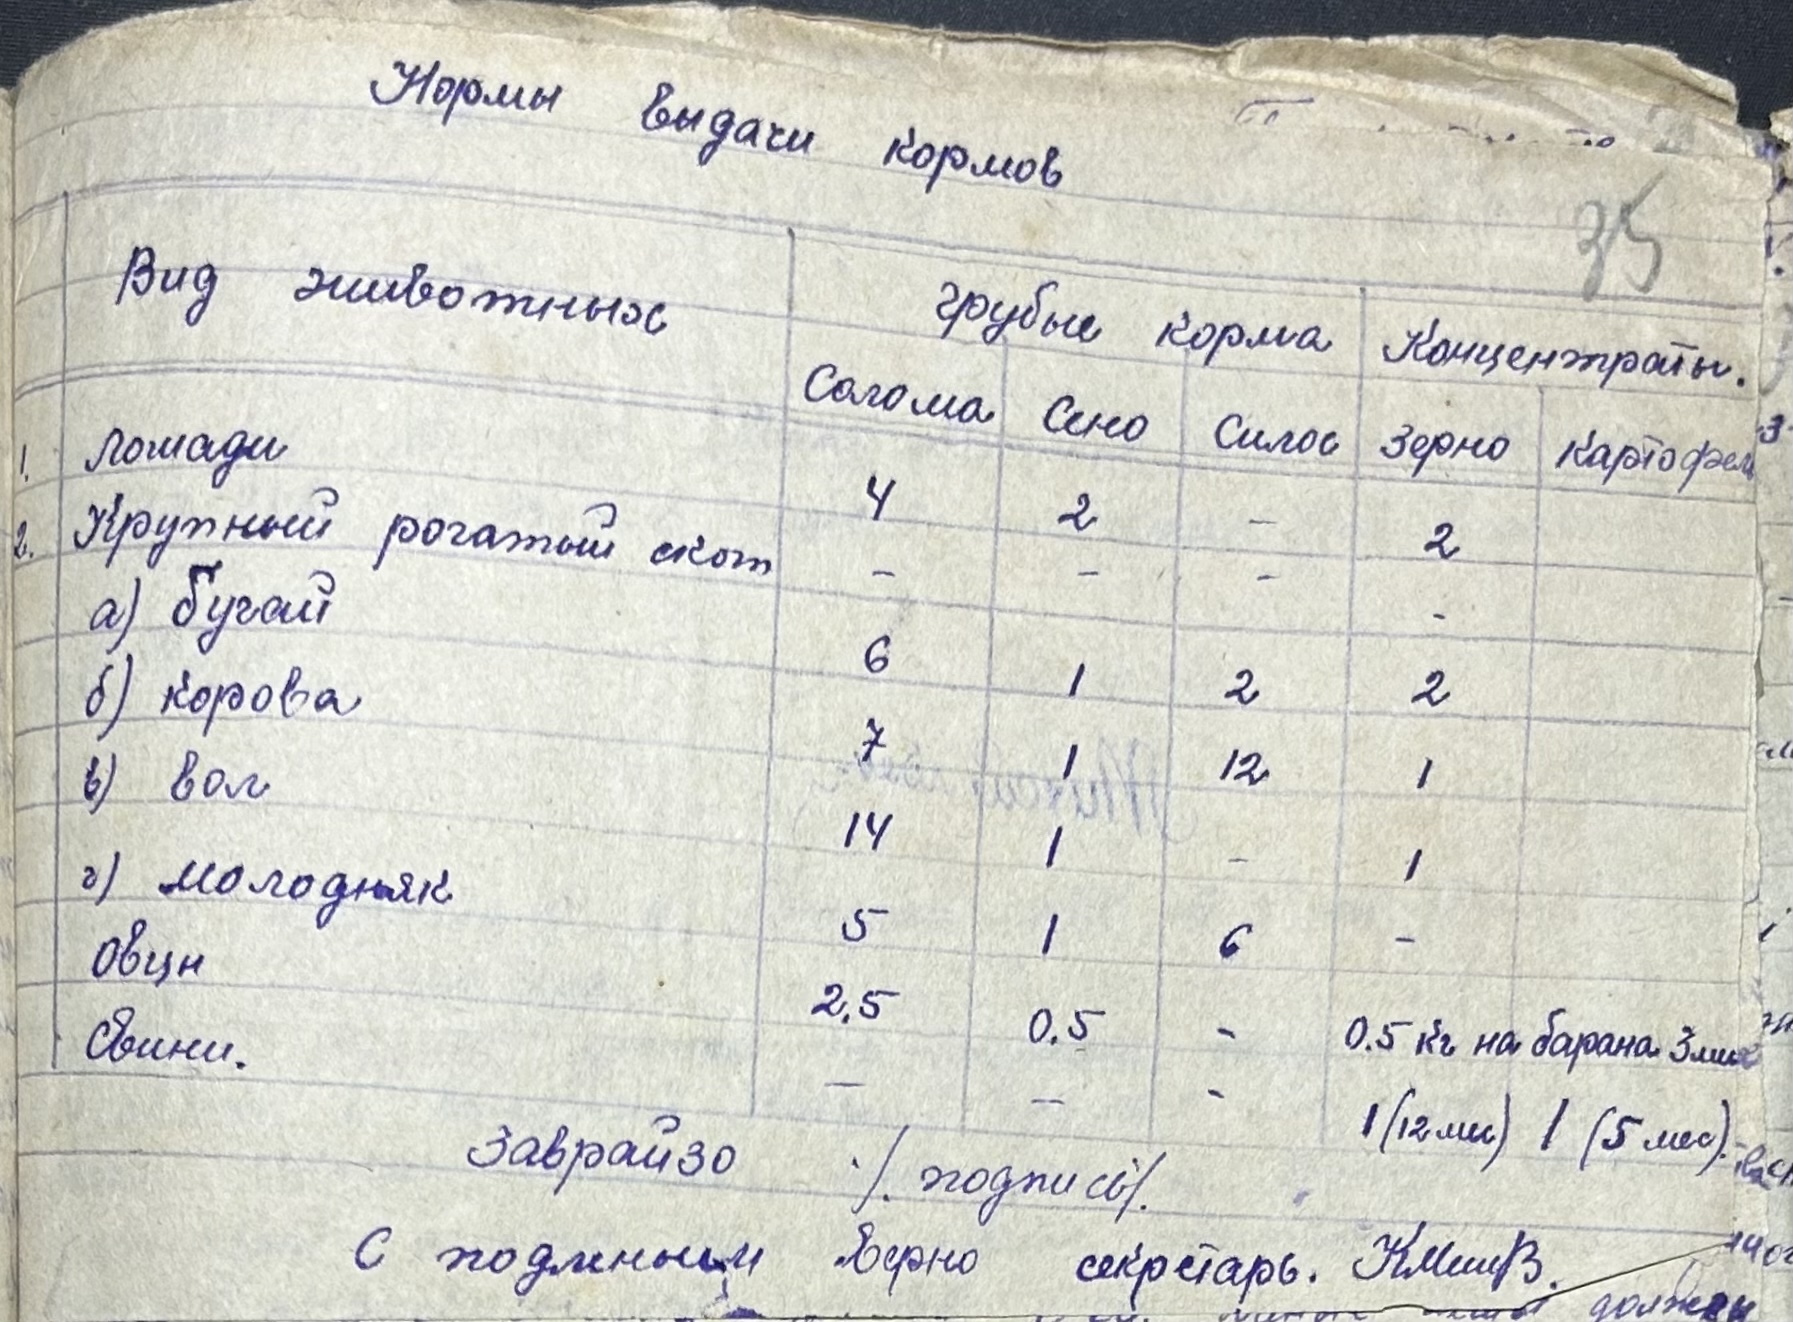 Нормы выдачи кормов
35
Вид животных грубые корма Концентраты.
Солома Сено Силос Зерно Картофель
1. Лошади 4 2 - 2
2. Крупный рогатый скот - - - -
а) бугай 6 1 2 2
б) корова 7 1 12 1
в) вол 14 1 - 1
г) молодняк 5 1 6 -
Овцы 2,5 0.5 - 0.5 кг на барана 3 мес
Свини. - - - 1 (12 мес) 1 (5 мес).
Заврайзо /. подпись/.
С подлиным верно секретарь.
должны